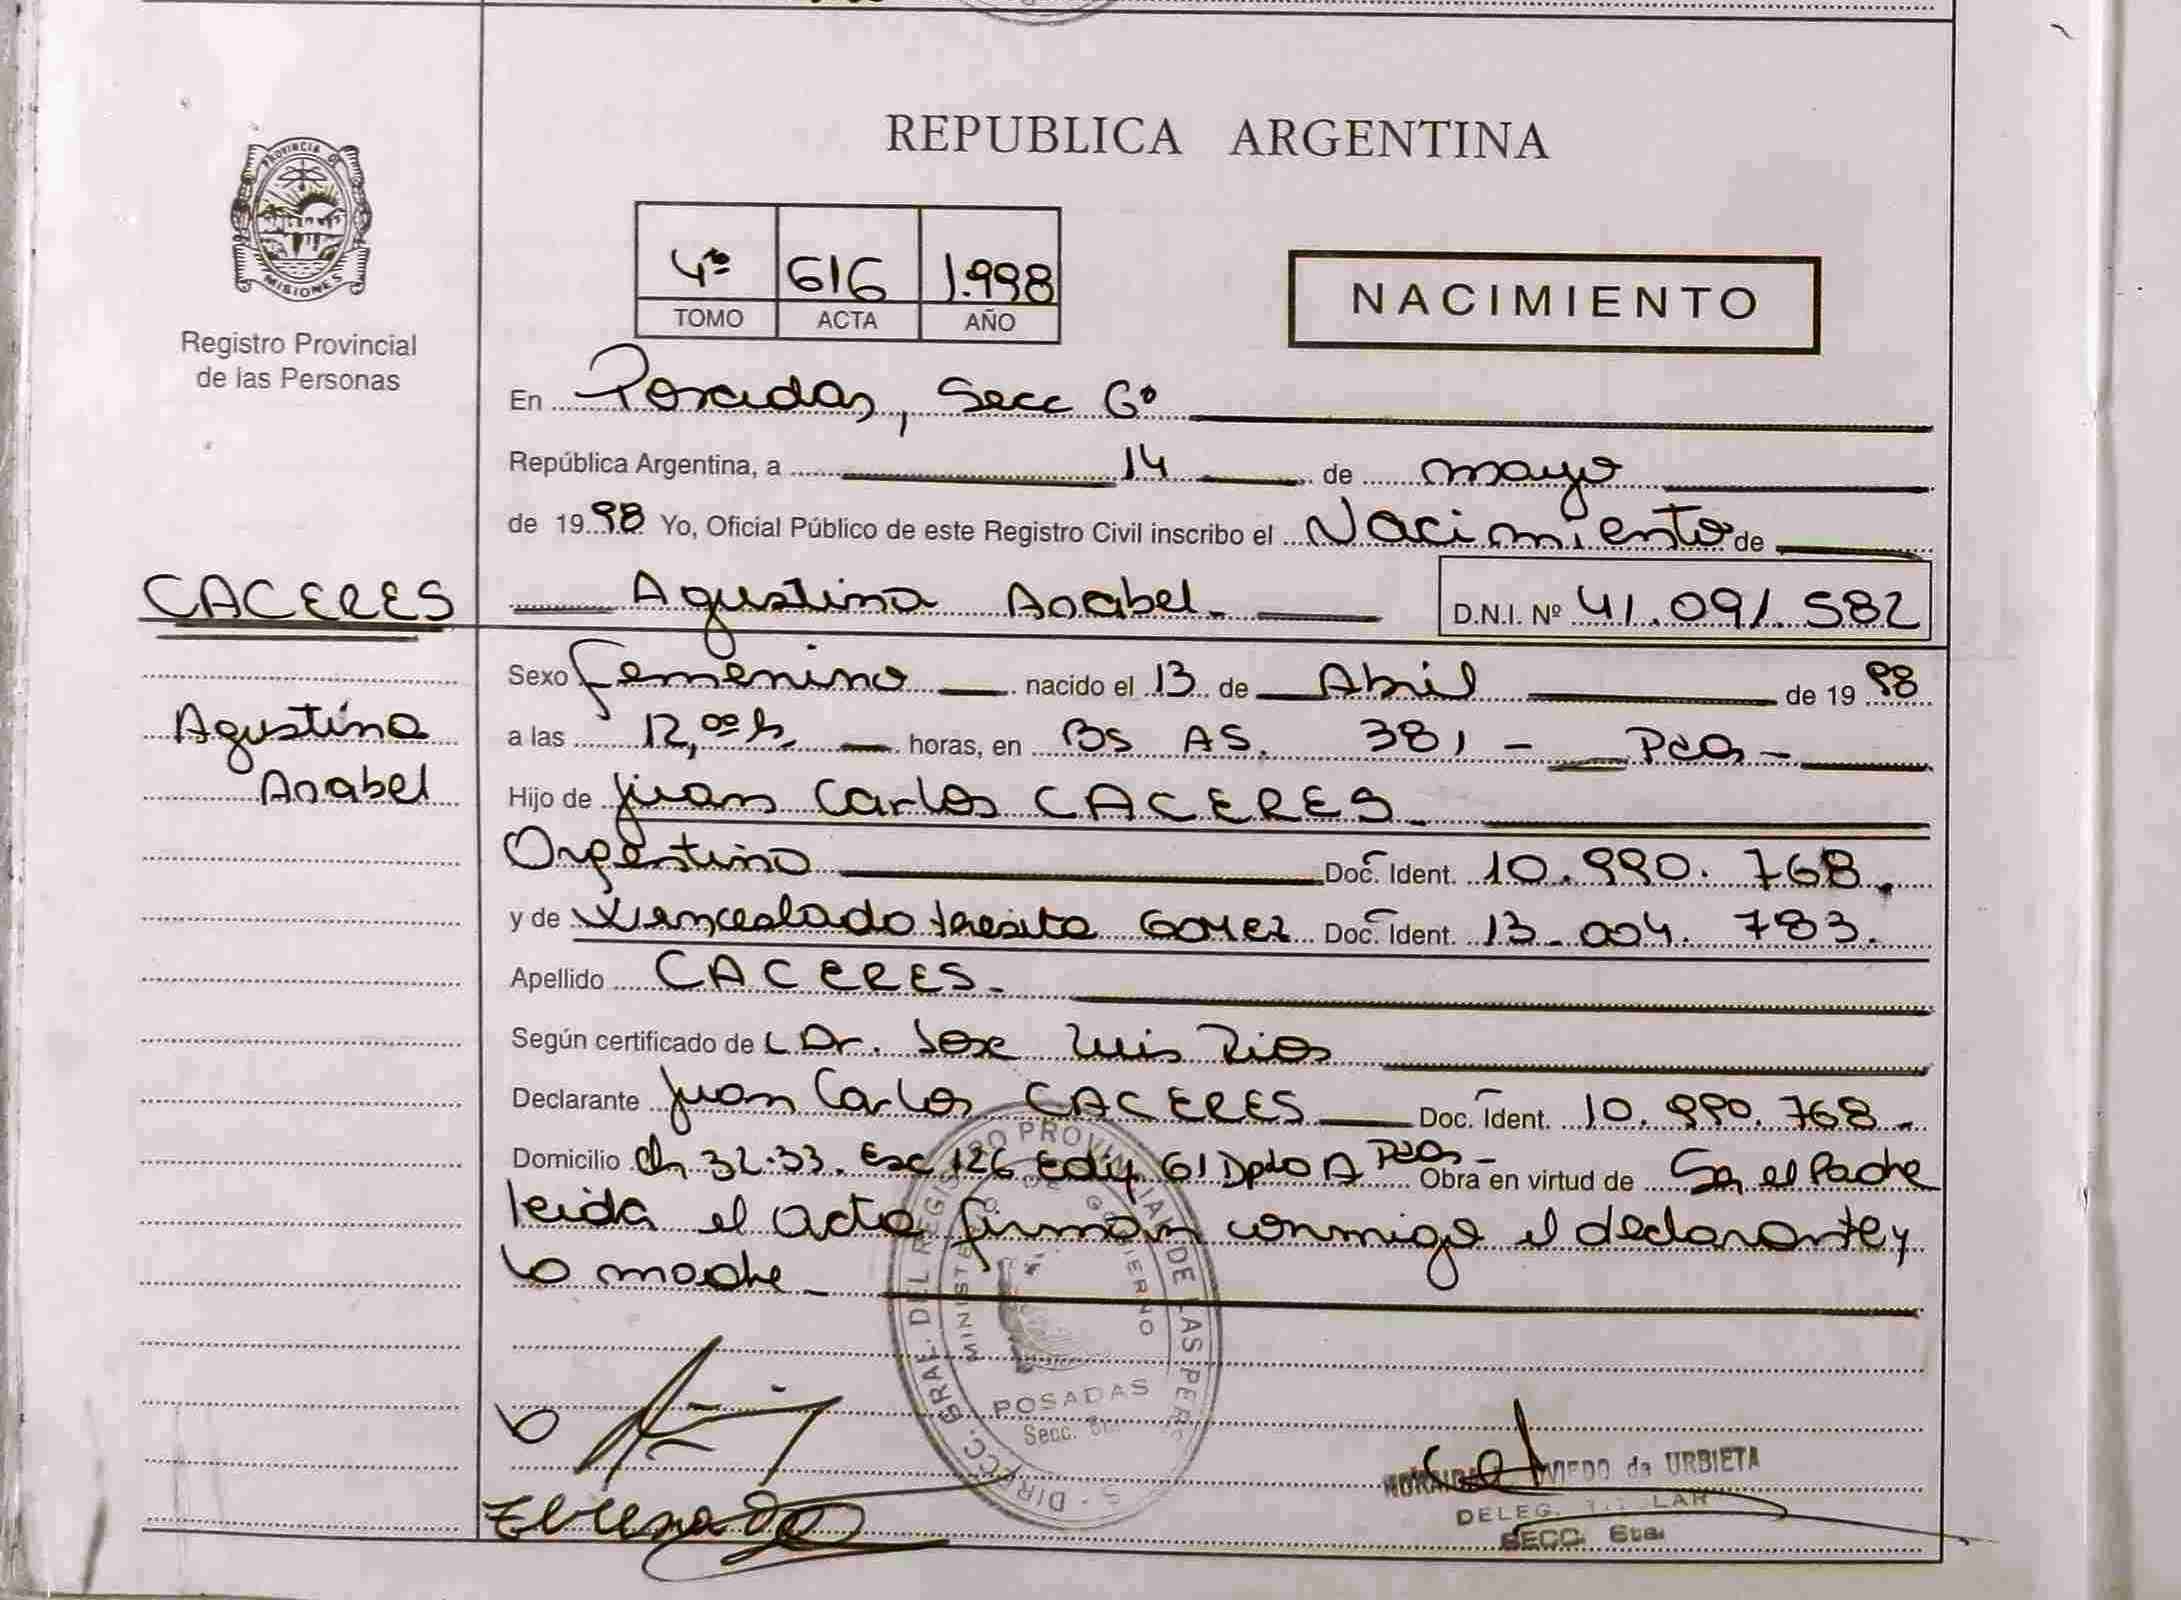 REPUBLICA ARGENTINA
PROVINCIA D
MISIONES
Registro Provincial
de las Personas
4º 616 1.998
TOMO ACTA AÑO
NACIMIENTO
En Posadas, Secc 6º
República Argentina, a 14 de mayo
de 1998 Yo, Oficial Público de este Registro Civil inscribo el Nacimiento de
CACERES
Agustina Anabel
Agustina Anabel. D.N.I. Nº 41.091.582
Sexo Femenino nacido el 13 de Abril de 1998
a las 12,ºº h horas, en Bs As. 381 - Pdas -
Hijo de Juan Carlos CACERES
Argentino Doc. Ident. 10.990.768.
y de Wenceslada teresita GOMEZ Doc. Ident. 13.004.783.
Apellido CACERES.
Según certificado de Dr. Jose Luis Rios
Declarante Juan Carlos CACERES Doc. Ident. 10.990.768
Domicilio Ch 32-33. Esc 126 Edif 61 Dpto A Pdas - Obra en virtud de Ser el Padre
leida el acta firman conmigo el declarante y
la madre
DIRECC. GRAL. DEL REGISTRO PROVINCIAL DE LAS PERS
MINISTERIO DE GOBIERNO
POSADAS
Secc. 6
OVIEDO de URBIETA
DELEG.
SECC. 6ta.